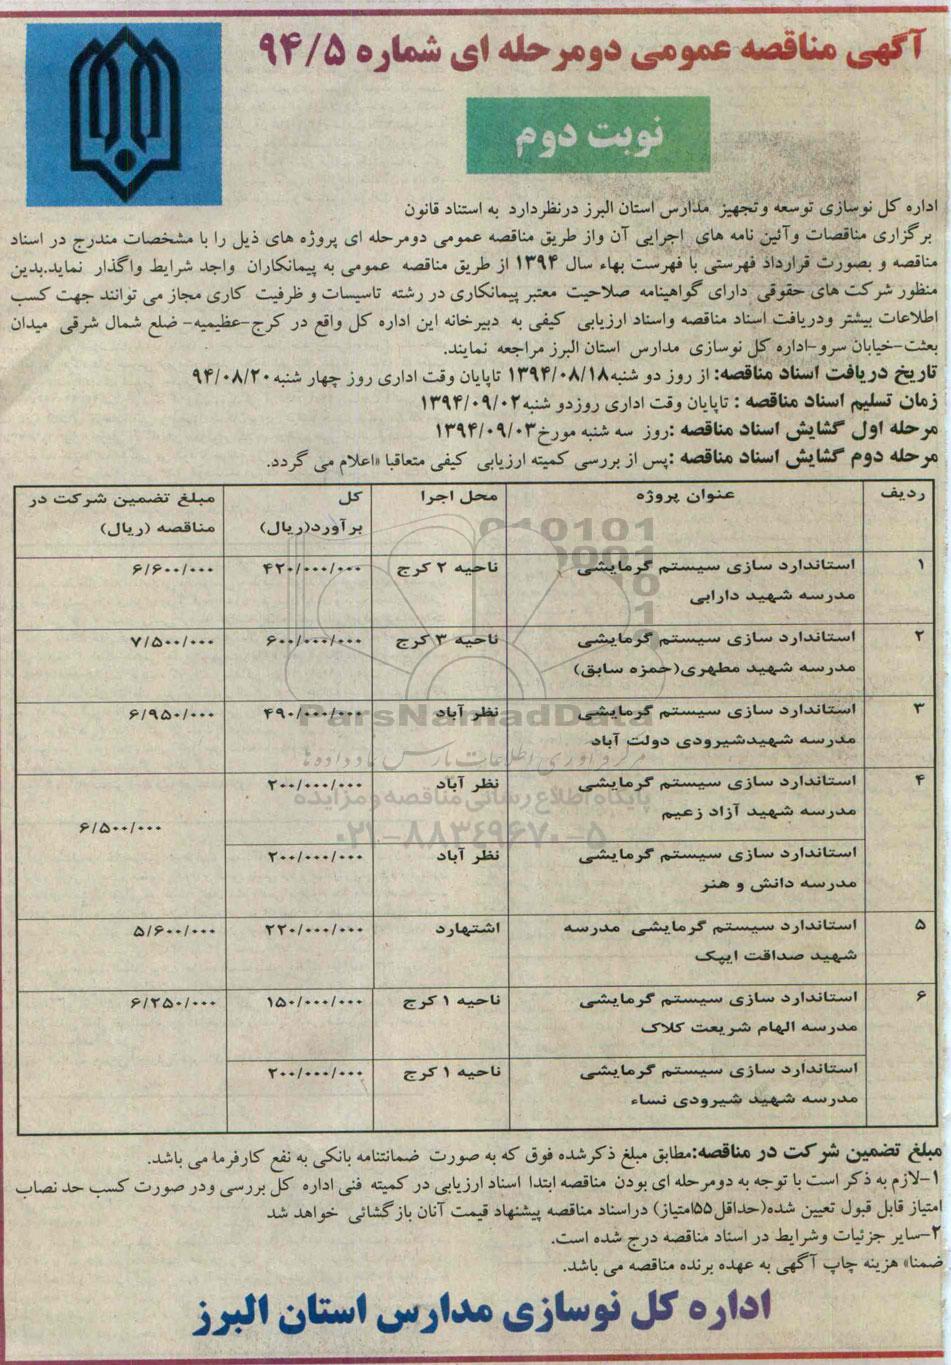 آگهی مناقصه عمومی دومرحله ای شماره ۹۴/۵
نوبت دوم
اداره کل نوسازی توسعه وتجهیز مدارس استان البرز درنظردارد به استناد قانون
برگزاری مناقصات وآئین نامه های اجرایی آن واز طریق مناقصه عمومی دومرحله ای پروژه های ذیل را با مشخصات مندرج در اسناد
مناقصه و بصورت قرارداد فهرستی با فهرست بهاء سال ۱۳۹۴ از طریق مناقصه عمومی به پیمانکاران واجد شرایط واگذار نماید.بدین
منظور شرکت های حقوقی دارای گواهینامه صلاحیت معتبر پیمانکاری در رشته تاسیسات و ظرفیت کاری مجاز می توانند جهت کسب
اطلاعات بیشتر ودریافت اسناد مناقصه واسناد ارزیابی کیفی به دبیرخانه این اداره کل واقع در کرج-عظیمیه- ضلع شمال شرقی میدان
بعثت-خیابان سرو-اداره کل نوسازی مدارس استان البرز مراجعه نمایند.
تاریخ دریافت اسناد مناقصه: از روز دو شنبه۱۳۹۴/۰۸/۱۸ تاپایان وقت اداری روز چهار شنبه۹۴/۰۸/۲۰
زمان تسلیم اسناد مناقصه : تاپایان وقت اداری روزدو شنبه۱۳۹۴/۰۹/۰۲
مرحله اول گشایش اسناد مناقصه :روز سه شنبه مورخ۱۳۹۴/۰۹/۰۳
مرحله دوم گشایش اسناد مناقصه :پس از بررسی کمیته ارزیابی کیفی متعاقبا «اعلام می گردد.
ردیف عنوان پروژه محل اجرا کل مبلغ تضمین شرکت در
برآورد(ریال) مناقصه (ریال)
۱ استاندارد سازی سیستم گرمایشی ناحیه ۲ کرج ۴۲۰/۰۰۰/۰۰۰ ۶/۶۰۰/۰۰۰
مدرسه شهید دارابی
۲ استاندارد سازی سیستم گرمایشی ناحیه ۳ کرج ۶۰۰/۰۰۰/۰۰۰ ۷/۵۰۰/۰۰۰
مدرسه شهید مطهری(حمزه سابق)
۳ استاندارد سازی سیستم گرمایشی نظر آباد ۴۹۰/۰۰۰/۰۰۰ ۶/۹۵۰/۰۰۰
مدرسه شهیدشیرودی دولت آباد
۴ استاندارد سازی سیستم گرمایشی نظر آباد ۲۰۰/۰۰۰/۰۰۰
مدرسه شهید آزاد زعیم
۶/۵۰۰/۰۰۰
استاندارد سازی سیستم گرمایشی نظر آباد ۲۰۰/۰۰۰/۰۰۰
مدرسه دانش و هنر
۵ استاندارد سیستم گرمایشی مدرسه اشتهارد ۲۲۰/۰۰۰/۰۰۰ ۵/۶۰۰/۰۰۰
شهید صداقت ایپک
۶ استاندارد سازی سیستم گرمایشی ناحیه ۱ کرج ۱۵۰/۰۰۰/۰۰۰ ۶/۲۵۰/۰۰۰
مدرسه الهام شریعت کلاک
استاندارد سازی سیستم گرمایشی ناحیه ۱ کرج ۲۰۰/۰۰۰/۰۰۰
مدرسه شهید شیرودی نساء
ParsNamadData
پایگاه اطلاع رسانی مناقصه و مزایده
۰۲۱-۸۸۳۴۹۶۷۰-۵
مبلغ تضمین شرکت در مناقصه:مطابق مبلغ ذکرشده فوق که به صورت ضمانتنامه بانکی به نفع کارفرما می باشد.
۱-لازم به ذکر است با توجه به دومرحله ای بودن مناقصه ابتدا اسناد ارزیابی در کمیته فنی اداره کل بررسی ودر صورت کسب حد نصاب
امتیاز قابل قبول تعیین شده(حداقل۵۵امتیاز) دراسناد مناقصه پیشنهاد قیمت آنان بازگشائی خواهد شد
۲-سایر جزئیات وشرایط در اسناد مناقصه درج شده است.
ضمنا« هزینه چاپ آگهی به عهده برنده مناقصه می باشد.
اداره کل نوسازی مدارس استان البرز